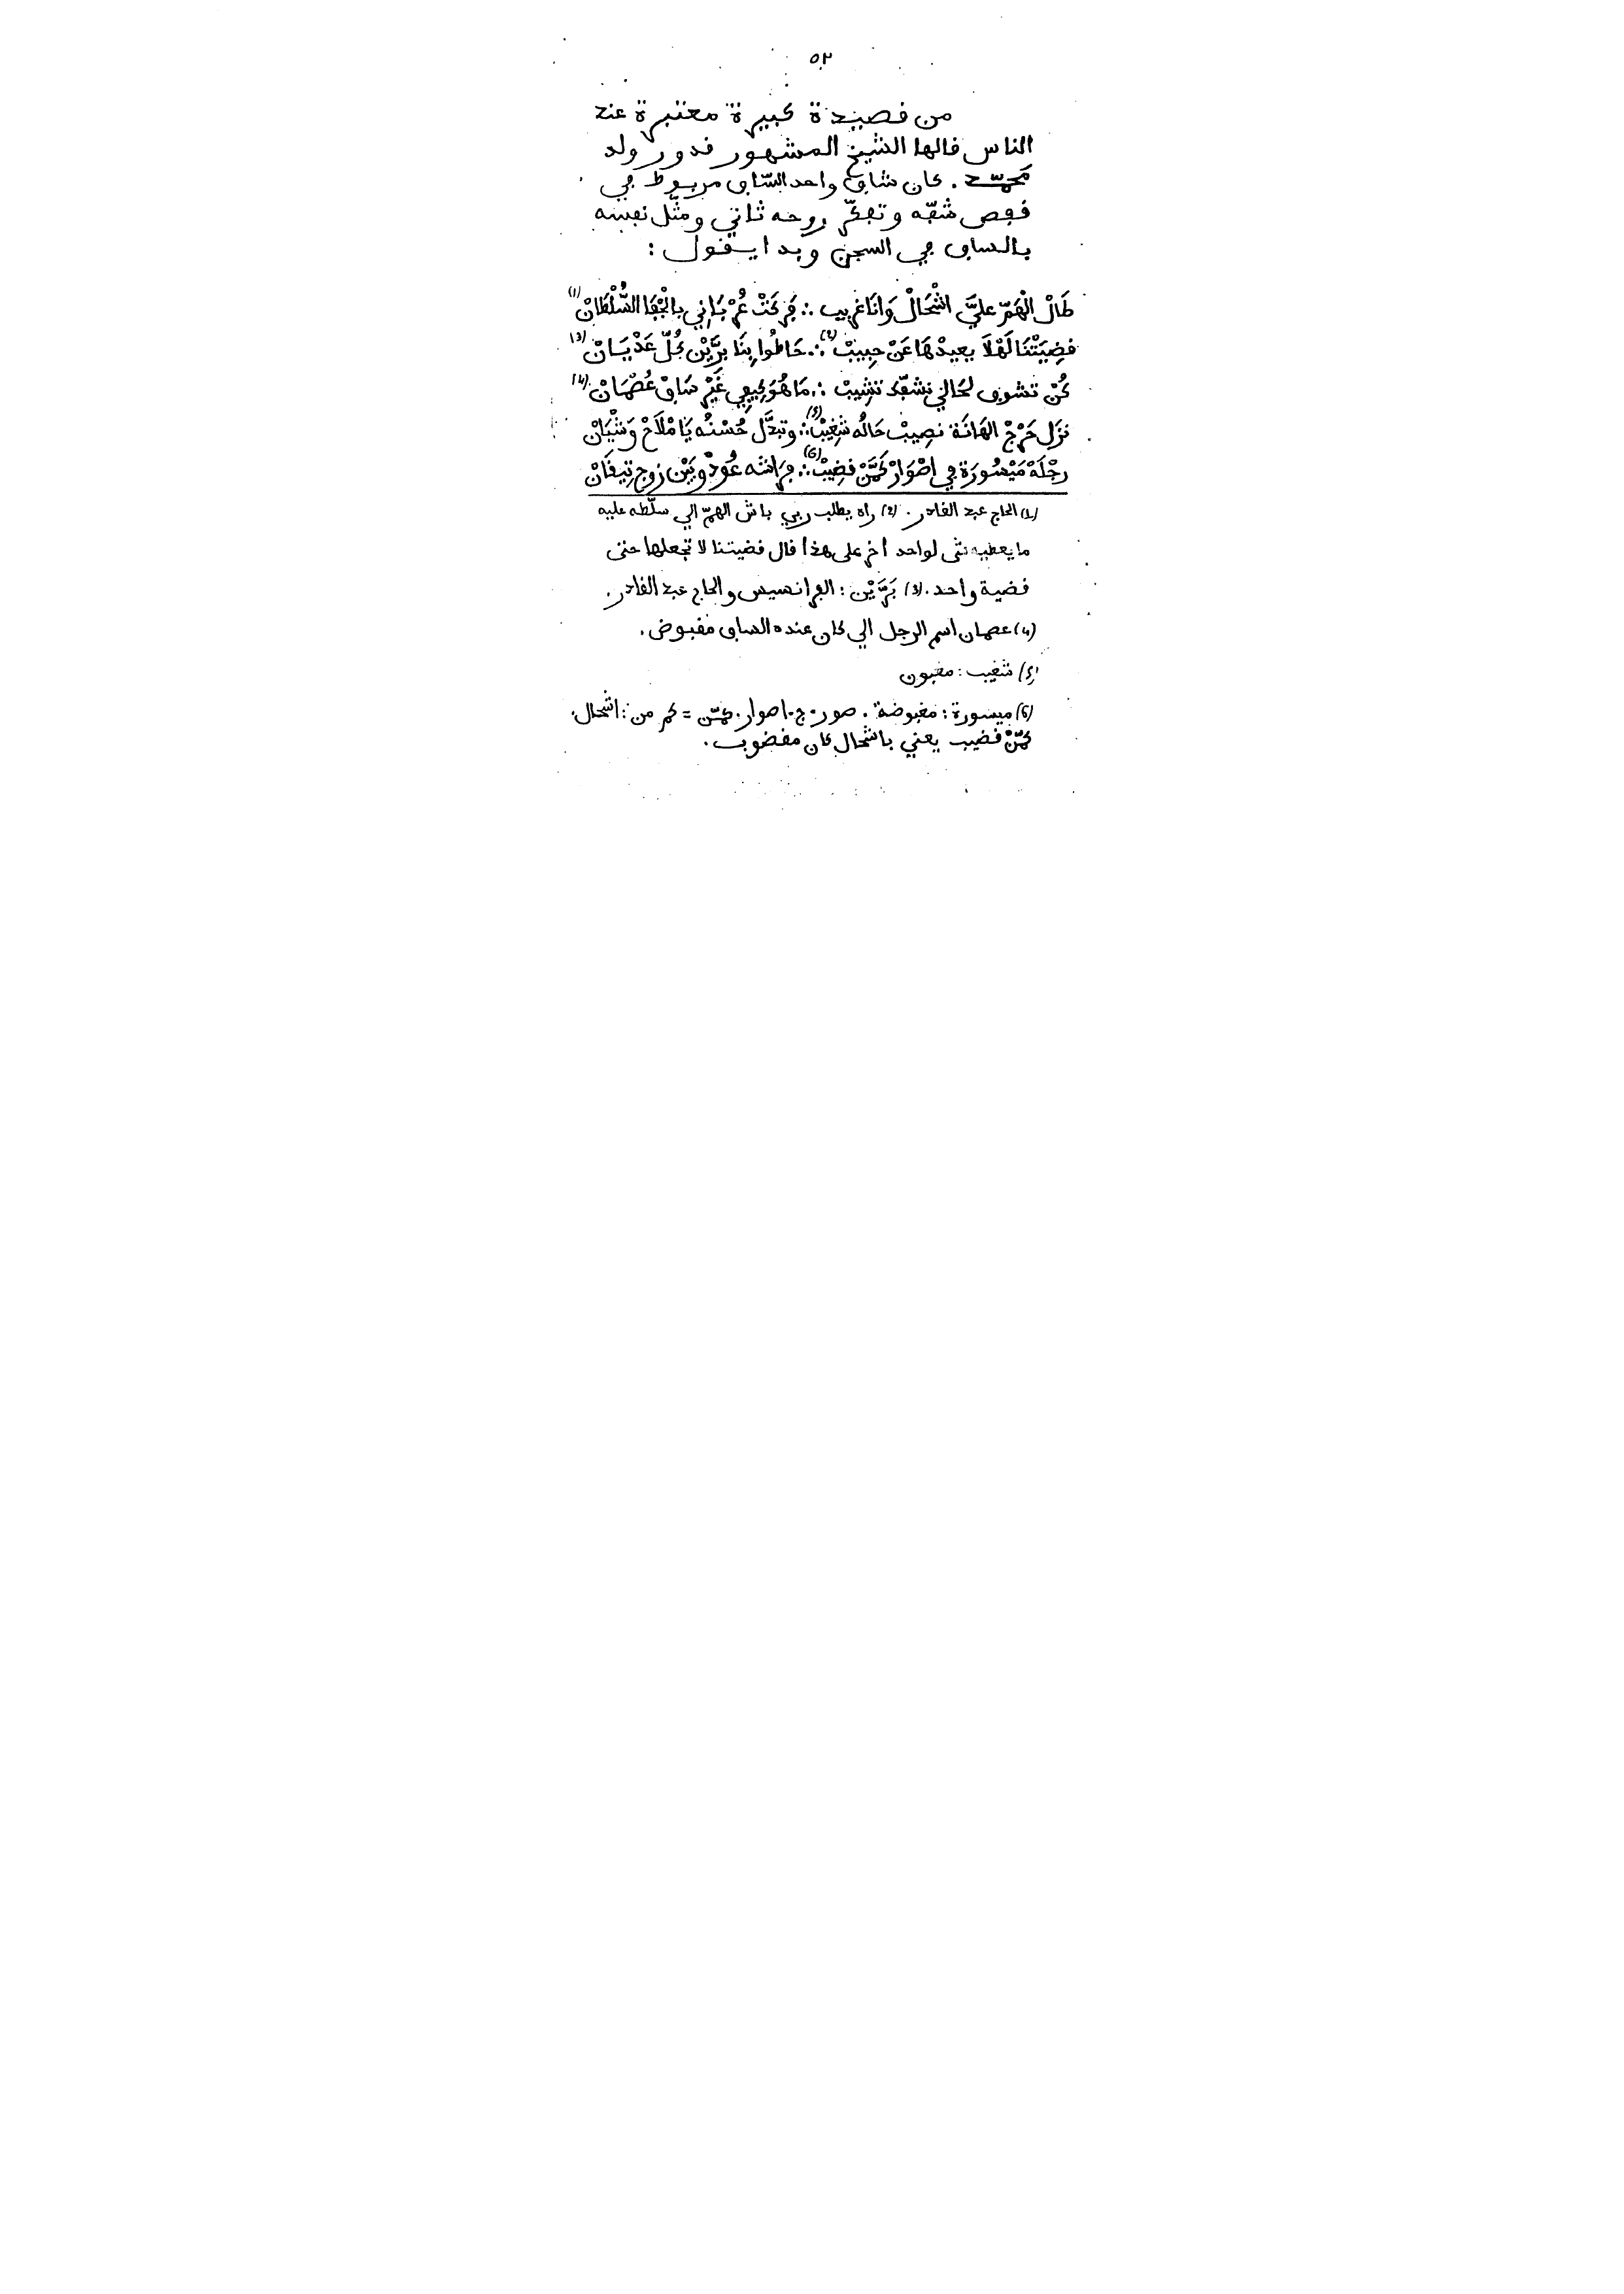 ٥٢
من ڧصيدة كبيرة معتبرة عند
الناس ڧالها الشيخ المشهور ڧدور ولد
مَحمّد. كان شاڢ واحد السّاڢ مربوط ڢي
ڧڢص شڢّه وتڢكّر روحه ثاني ومثّل نڢسه
بالساڢ ڢي السجن وبدا يڧول :
طَالْ الْهَمّ عليَّ اشْحَالْ وَانَا غريب ∴ ڢَركَتْ عُرْبَانِي بالجْڢَا السُّلْطَانْ (1)
ڧضِيَتْنَا لَهْلَا يعيدْهَا عَنْ حبِيبْ (2) ∴ حَاطُوا بِنَا برَّيْن كُلّ عَدْيَانْ (3)
كُنْ تشوڢ لحَالي نشڢّك تشِيبْ ∴ مَا هُوَ كِيڢِي غَيْر سَاڢْ عُصْمَانْ (4)
نزَل ڢَرْجْ الهَانَة نصِيبْ حَالُه شْغِيبْ (5) ∴ وتبدَّل حُسْنُه يَا مْلَاحْ وَشْيَانْ
رجْلَهْ مَيْسُورَة ڢي اصْوَارْ كَمَّنْ ڧضِيبْ (6) ∴ ڢرَاشه عُودْ وبَيْن زوج تِيڢَانْ
(1) الحاج عبد الڧادر. (2) راه يطلب ربي باش الهمّ الي سلّطه عليه
ما يعطيه شى لواحد اخر على هذا ڧال ڧضيتنا لا تجعلها حتى
ڧضية واحد. (3) بَرَّيْن : الڢرانسيس والحاج عبد الڧادر.
(4) عصمان اسم الرجل الي كان عنده الساڢ مڧبوض.
(5) شغيب : مغبون
(6) ميسورة : مڧبوضة. صور. ج. اصوار. كمّن = كم من : اشحال.
كمّنْ ڧضيب يعني باشحال كان مڧضوب.